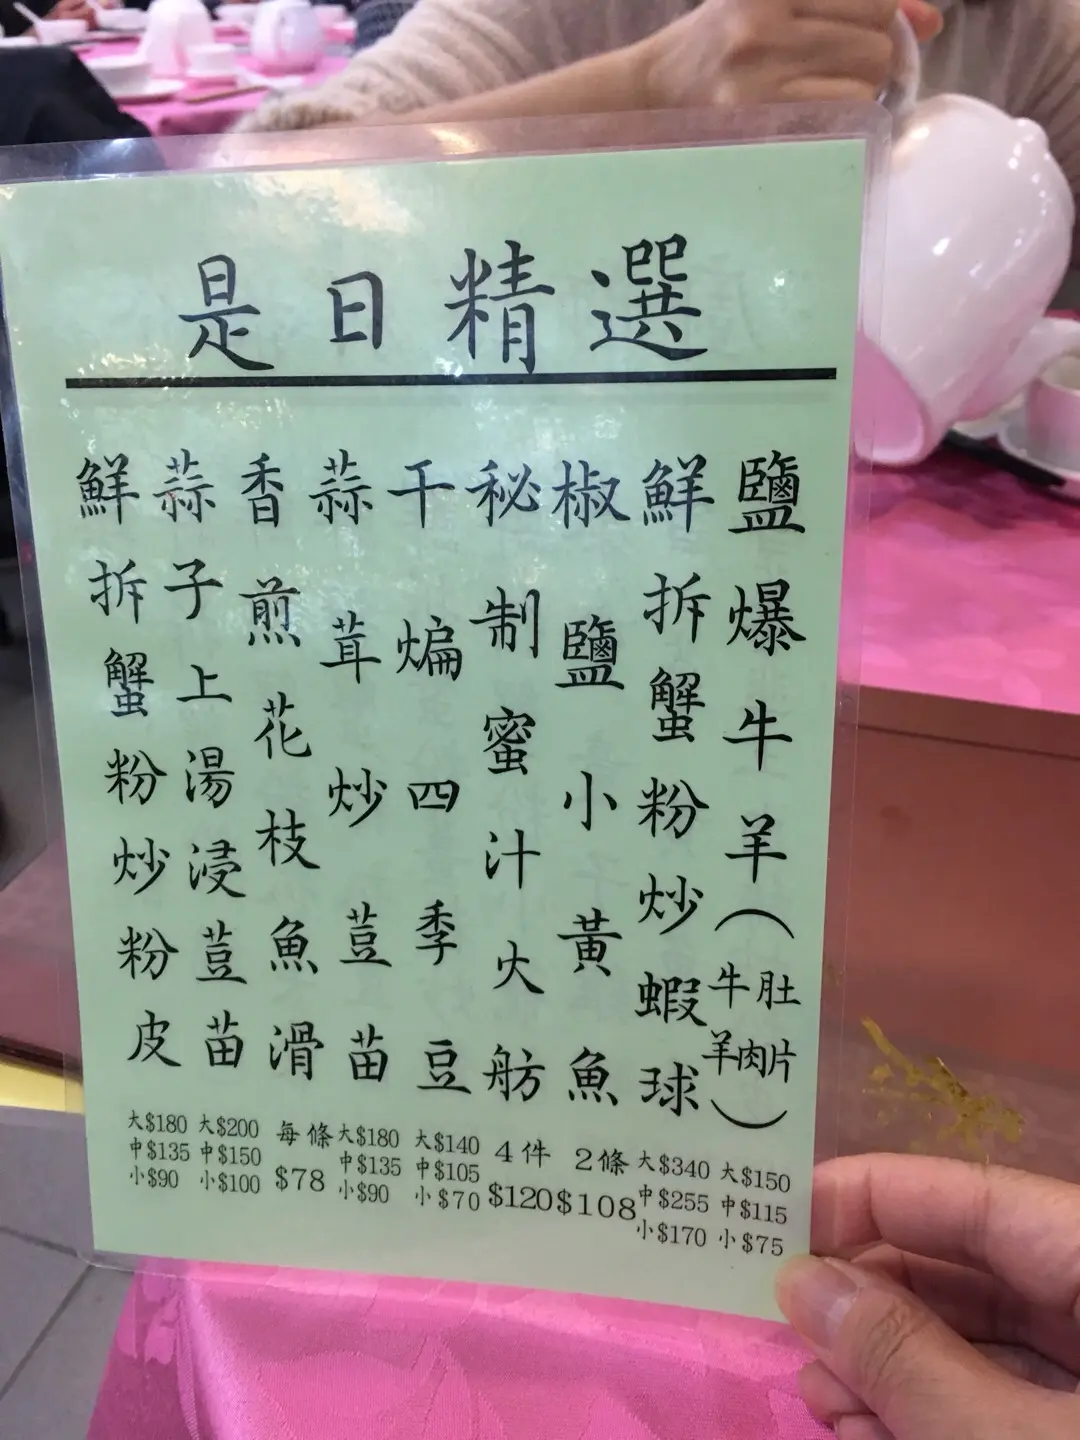 是日精選
鹽爆牛羊(牛肚羊肉片)
大$150
中$115
小$75
鮮拆蟹粉炒蝦球
大$340
中$255
小$170
椒鹽小黃魚
2條
$108
秘制蜜汁火舫
4件
$120
干煸四季豆
大$140
中$105
小$70
蒜茸炒荳苗
大$180
中$135
小$90
香煎花枝魚滑
每條
$78
蒜子上湯浸荳苗
大$200
中$150
小$100
鮮拆蟹粉炒粉皮
大$180
中$135
小$90